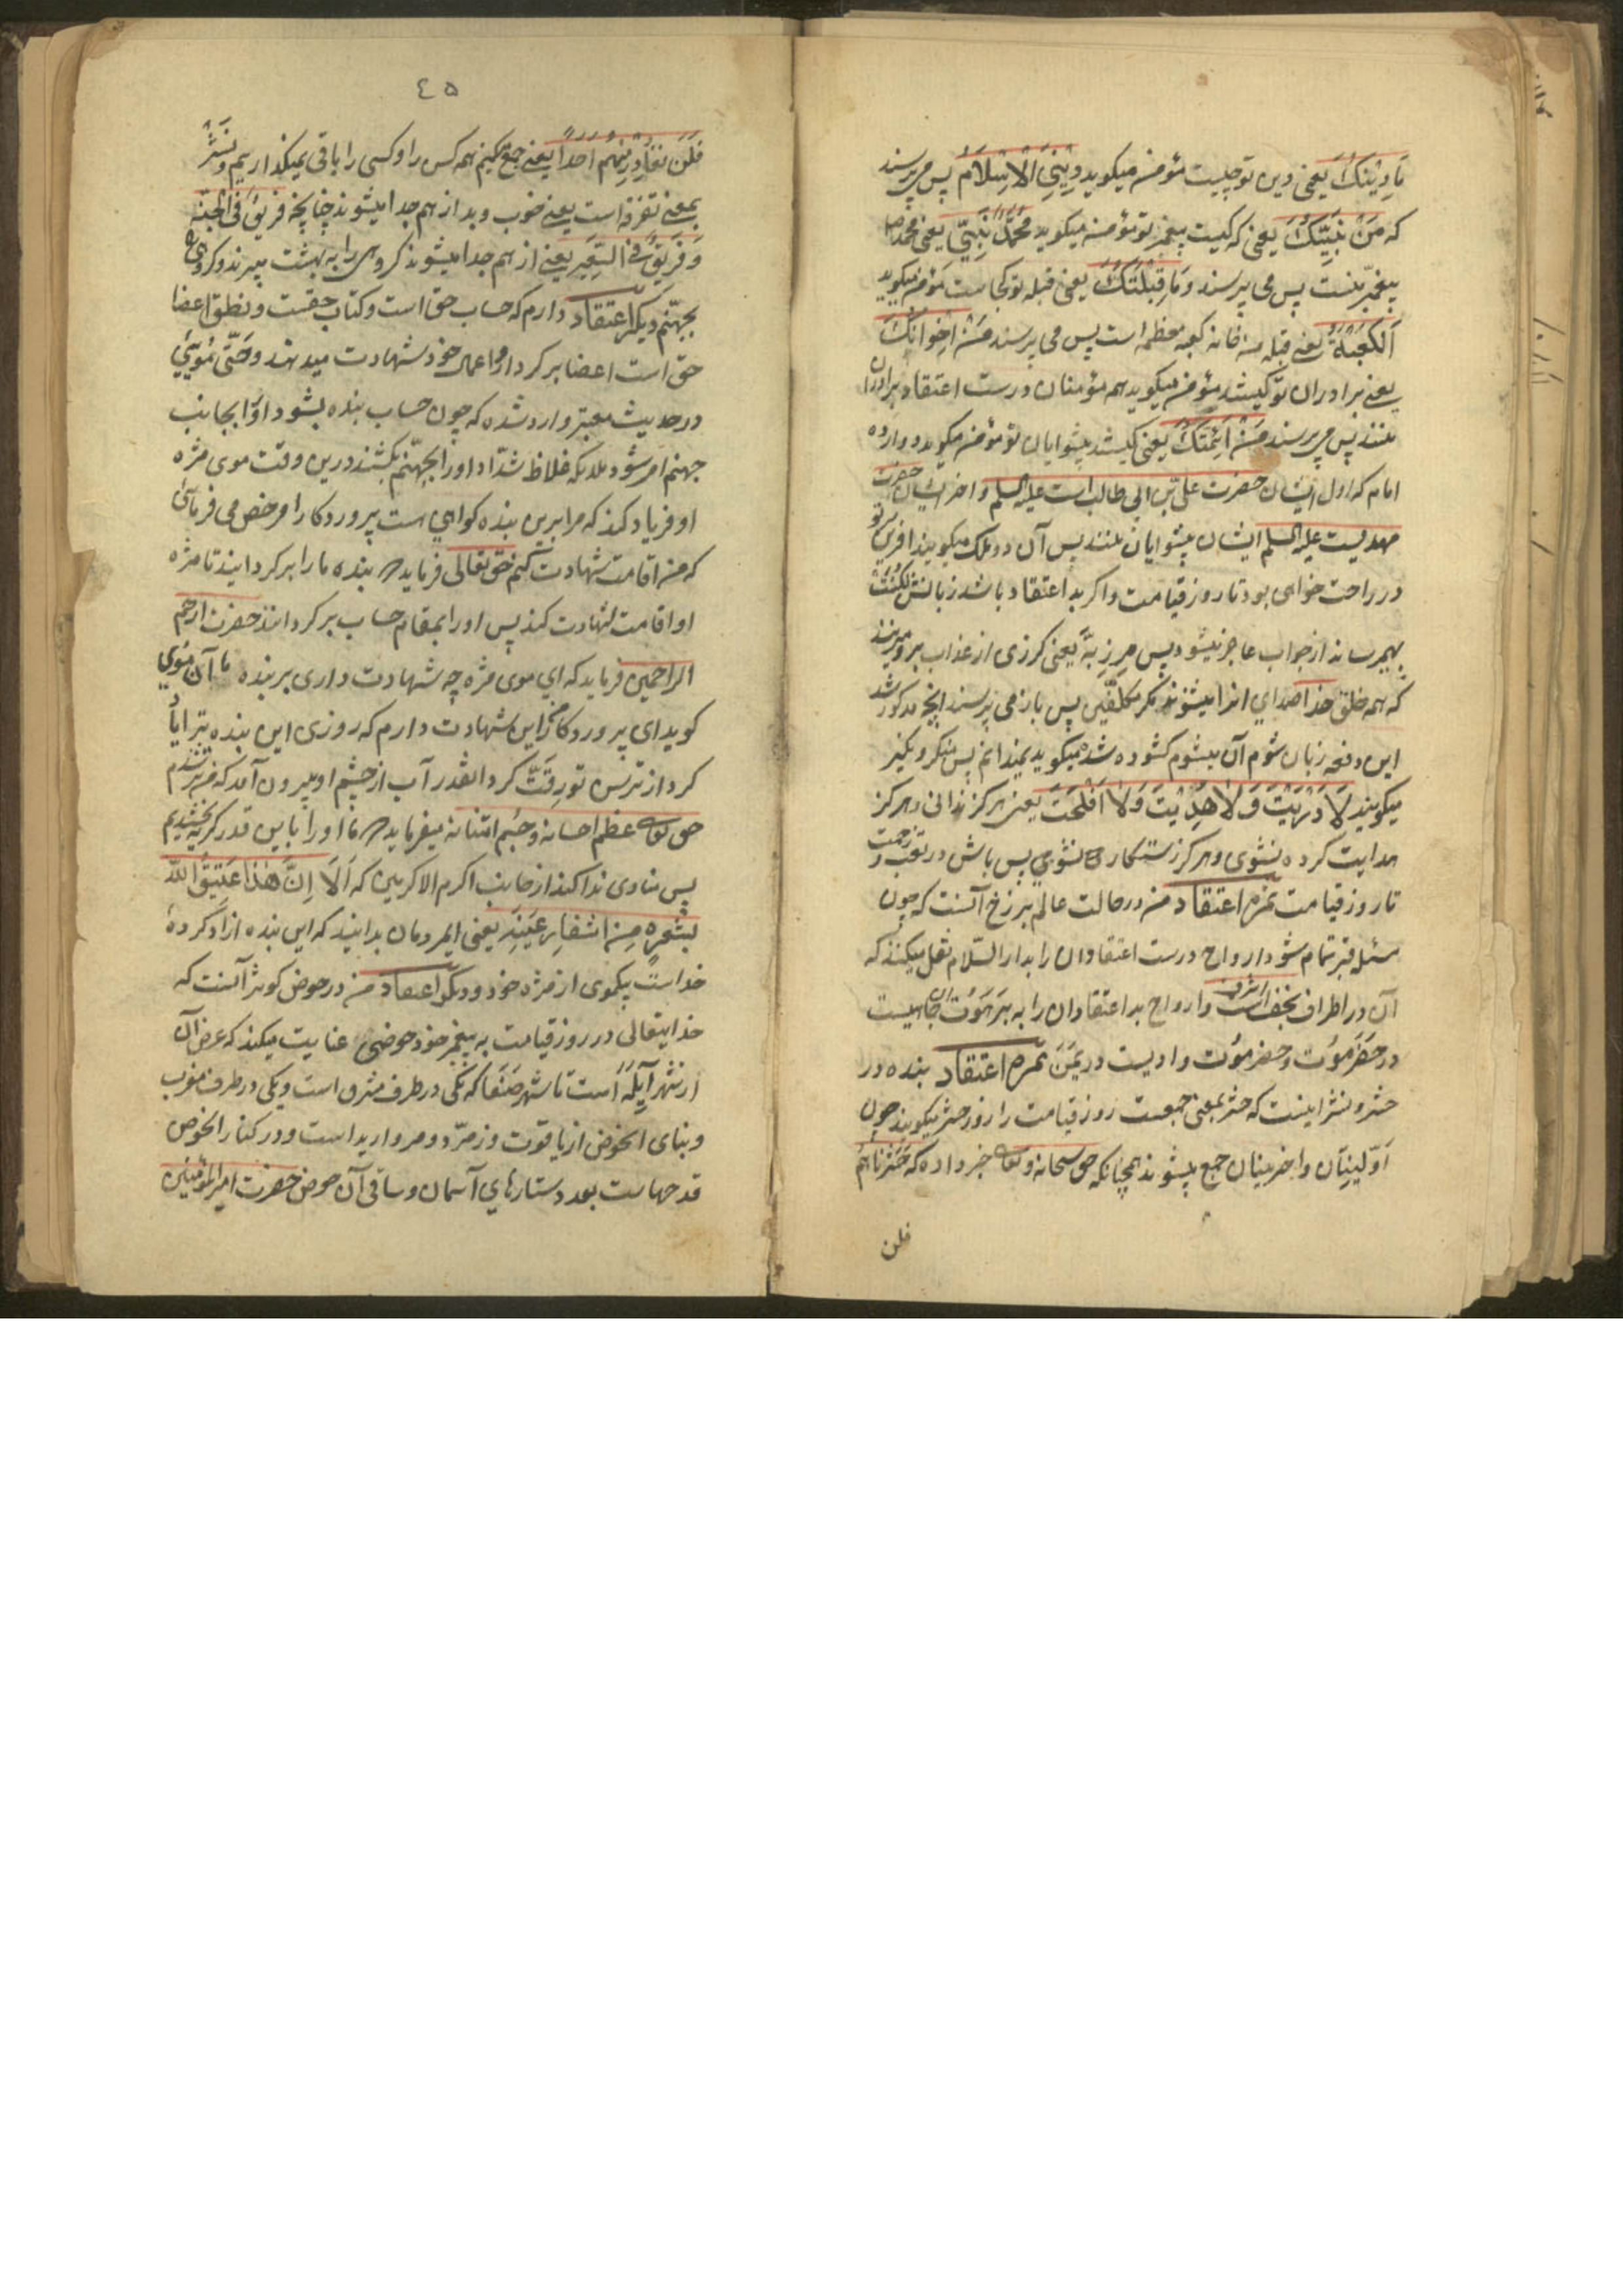 مَا دِیْنُکَ یعنی دین تو چیست مؤمن میکوید دِیْنِیَ الْاِسْلَامُ پس می پرسند
که مَنْ نَبِیُّکَ یعنی که کیست پیغمبر تو مؤمن میکوید مُحَمَّدٌ نَبِیّی یعنی محمد ص
پیغمبر منست پس می پرسند وَمَا قِبْلَتُکَ یعنی قبله تو کجاست مؤمن میکوید
اَلْکَعْبَةُ یعنی قبله من خانه کعبه معظمه است پس می پرسند مَنْ اِخْوَانُکَ
یعنی برادران تو کیستند مؤمن میکوید همه مؤمنان درست اعتقاد برادران
منند پس می پرسند مَنْ اَئِمَّتُکَ یعنی کیستند پیشوایان تو مؤمن میکوید دوازده
امام که اول ایشان حضرت علی بن ابی طالب است علیه السلم و آخر ایشان حضرت
مهدیست علیه السلم ایشان پیشوایان منند پس آن دو ملک میکویند آفرین تو
در راحت خواهی بود تا روز قیامت و اکر بد اعتقاد باشد زبانش لکنت
بهم رساند از جواب عاجز میشود پس مِرزبَه یعنی کرزی از عذاب بر او میزنند
که همه خلق خدا صدای انرا میشنوند مکر مکلفین پس باز می پرسند انچه مذکور شد
این دفعه زبان شوم آن میشوم کشوده شد میکوید نمیدانم پس منکر و نکیر
میکویند لَا دَرَیْتَ وَلَا هُدِیْتَ وَلَا اَفْلَحْتَ یعنی هرکز ندانی و هرکز
هدایت کرده نشوی و هرکز رستکار نشوی پس باش در تعب و زحمت
تا روز قیامت نمره اعتقاد من در حالت عالم برزخ آنست که چون
مسئله قبر تمام شود ارواح درست اعتقادان را بدار السّلام نقل میکنند که
آن در اطراف نجف اشرف است و ارواح بد اعتقادان را به برهوت و آن چاهیست
در حضرموت و حضرموت وادیست در یَمَن نمره اعتقاد بنده در
حشر و نشر اینست که حشر بمعنی جمعست روز قیامت را روز حشر میکویند چون
اوّلینان و اخرینان جمع میشوند همچنانکه حق سبحانه و تعالی خبر داده که حَشَرْنَاهُمْ
فلن
٤٥
فَلَن نُغَادِرْ مِنْهُمْ اَحَدًا یعنی جمع کنیم همه کس را و کسی را باقی نمیکذاریم و نَشْر
بمعنی تفرقه است یعنی خوب و بد از هم جدا میشوند چنانچه فَرِیْقٌ فِی الْجَنَّةِ
وَفَرِیْقٌ فِی السَّعِیْرِ یعنی از هم جدا میشوند کروهی را به بهشت میبرند و کروهی را
بجهنّم دیکر اعتقاد دارم که حساب حق است و کتاب حقست و نطق اعضا
حق است اعضا بر کردار و اعمال خود شهادت میدهند و حتّی موئی
در حدیث معتبر وارد شده که چون حساب بنده بشود او را بجانب
جهنم امر شود ملائکه غلاظ شداد او را بجهنّم بکشند درین وقت موی مژه
او فریاد کند که مرا برین بنده کواهی هست پروردکارا مرخص می فرمائی
که من اقامت شهادت کنم حق تعالی فرماید که بنده ما را برکردانید تا مژه
او اقامت شهادت کند پس او را بمقام حساب برکردانند حضرت ارحم
الراحمین فرماید که ای موی مژه چه شهادت داری بر بنده ما آن موی
کوید ای پروردکار من این شهادت دارم که روزی این بنده ترا یاد
کرد از ترس تو رقّت کرد انقدر آب از چشم او بیرون آمد که من تر شدم
حق تعالی عظم احسانه و جسم امتنانه میفرماید که ما او را باین قدر کریه بخشیدیم
پس منادی ندا کند از جانب اکرم الاکرمین که اَلَا اِنَّ هٰذَا عَتِیْقُ اللّٰه
بِشَعْرَةٍ مِنْ اشفار عَیْنِهِ یعنی ایمردمان بدانید که این بنده آزاد کرده
خداست بیکموی از مژه خود و دیکر اعتقاد من در حوض کوثر آنست که
خدایتعالی در روز قیامت به پیغمبر خود حوضی عنایت میکند که عرض آن
از شهر اَیْلَه است تا شهر صَنعَا که یکی در طرف مشرق است و یکی در طرف مغرب
و بنای الحوض از یاقوت و زمرّد و مروارید است و در کنار الحوض
قدحهاست بعدد ستارهای آسمان و ساقی آن حوض حضرت امیر المؤمنین